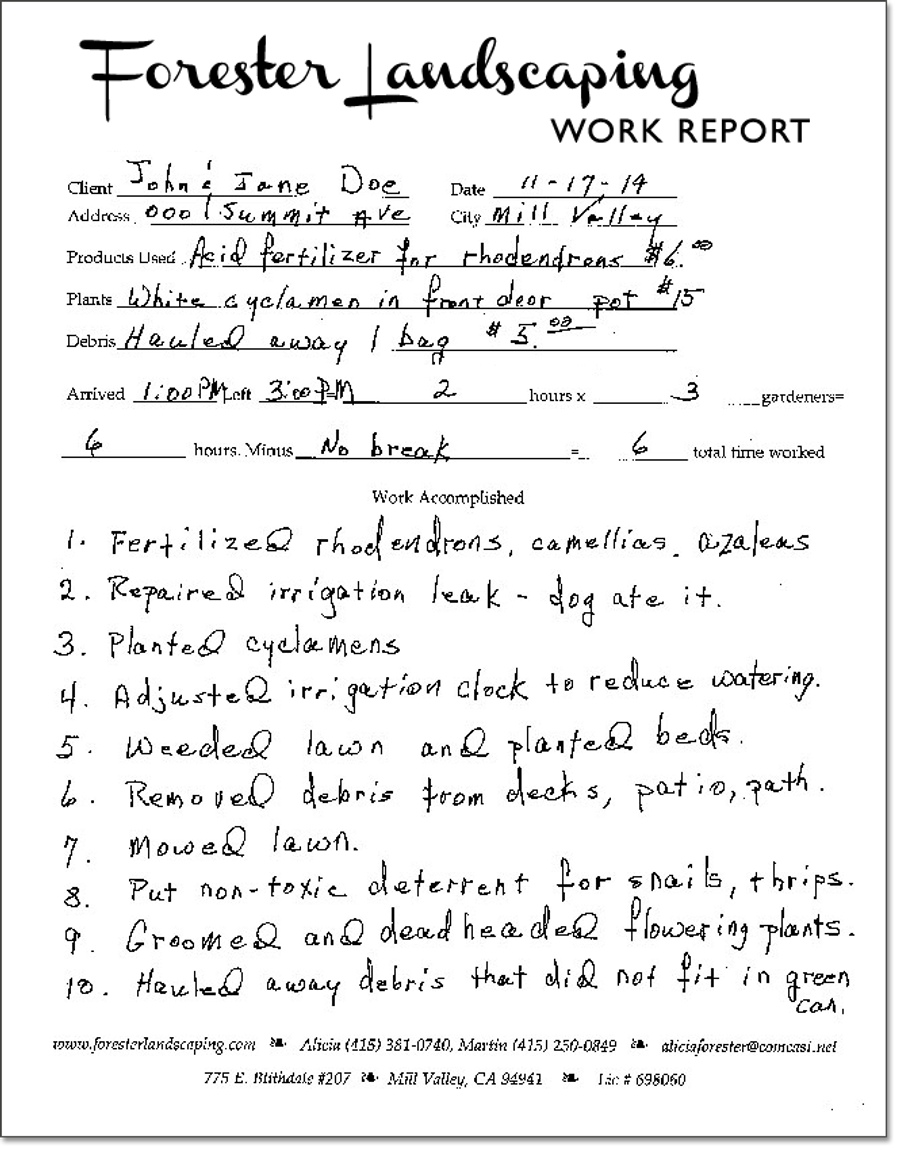 Forester Landscaping
WORK REPORT
Client John & Jane Doe Date 11-17-14
Address 0001 Summit Ave City Mill Valley
Products Used Acid fertilizer for rhodendrons $6.00
Plants White cyclamen in front door pot $15
Debris Hauled away 1 bag $5.00
Arrived 1:00 PM Left 3:00 PM = 2 hours x 3 gardeners=
6 hours. Minus No break = 6 total time worked
Work Accomplished
1. Fertilized rhodendrons, camellias, azaleas
2. Repaired irrigation leak - dog ate it.
3. Planted cyclamens
4. Adjusted irrigation clock to reduce watering.
5. Weeded lawn and planted beds.
6. Removed debris from decks, patio, path.
7. Mowed lawn.
8. Put non-toxic deterrent for snails, thrips.
9. Groomed and deadheaded flowering plants.
10. Hauled away debris that did not fit in green
can.
www.foresterlandscaping.com ❧ Alicia (415) 381-0740, Martin (415) 250-0849 ❧ aliciaforester@comcast.net
775 E. Blithdale #207 ❧ Mill Valley, CA 94941 ❧ Lic # 698060